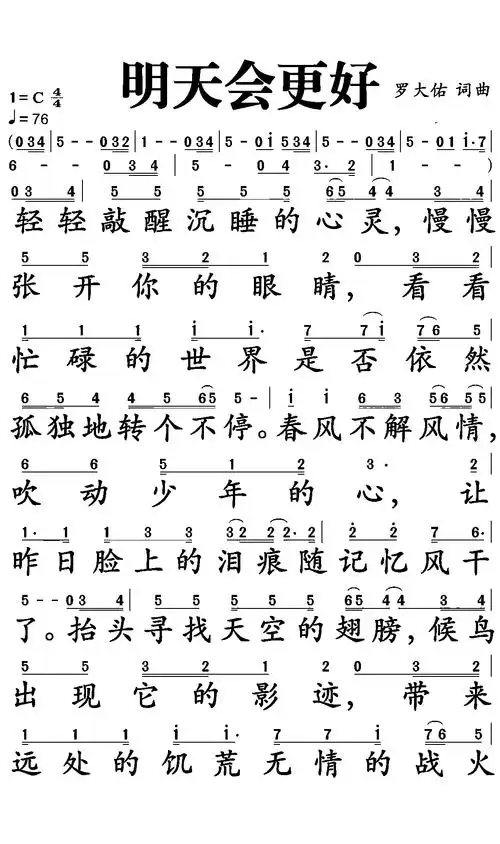 明天会更好
罗大佑 词曲
1=C 4/4
♩=76
(034|5--032|1--034|5--0i534|5--034|5-01i·7|
6--034|5-04|3·2|1--)
034|5555 5|65443 4|
轻轻敲醒沉睡的心灵,慢慢
5 5 3 2 1 2 0 3 2|
张开你的眼睛,看看
1 1 1 i i· 7 7i i 76 5|
忙碌的世界是否依然
6 5 4 4 5 65 5-| i i 6 3 56 55|
孤独地转个不停。春风不解风情,
6 6 5 1 2 3· 2|
吹动少年的心,让
1· 1 1 3 3 32 2 2·2|2· 2 7 6·
昨日脸上的泪痕随记忆风干
5--03 4|5 5 5 5 5 65 44 3 4|
了。抬头寻找天空的翅膀,候鸟
5 5 3 2 1 2 0 3 2|
出现它的影迹,带来
1 1 1 i i· 7 7 i 76 5|
远处的饥荒无情的战火